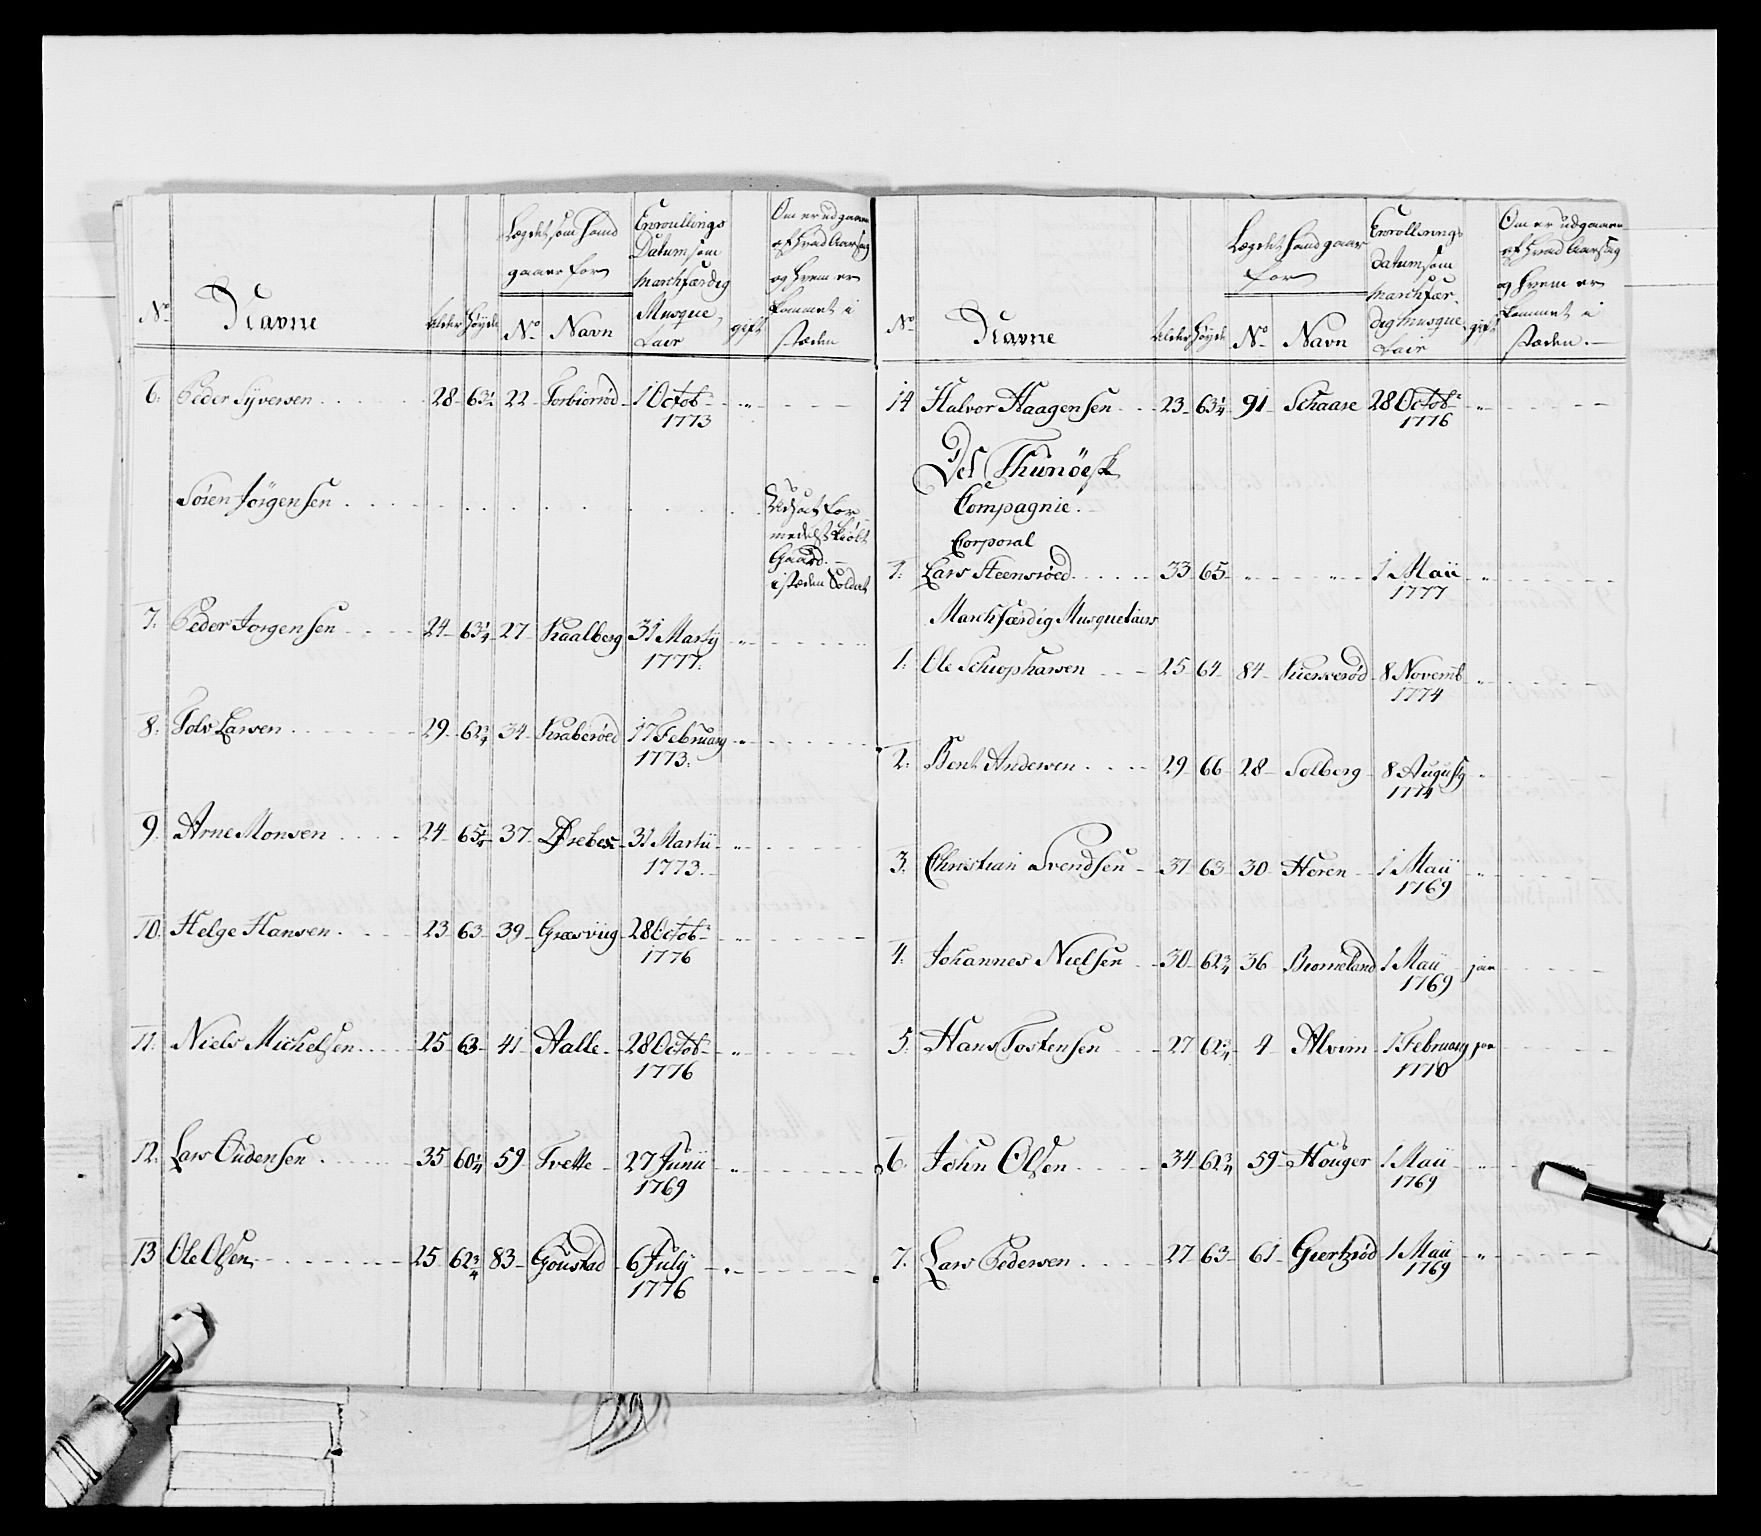 No Navne Alder Høyde Lægdet som hand gaaer for No Navn Enroullings Datum som Marchfærdig Musquetair gift Om er udgaaen af hvad Aarsag og hvem er kommet i stæden
6. Peder Syversen 28 63½ 22 Torbiorrød 1 Octobr 1773
Sören Jörgensen Udsat formedelst kiöbt Gaard. i stæden Soldat
7. Peder Jorgensen 24 63¼ 27 Kaalberg 31 Marty 1777.
8. Tolv Larsen 29 62¾ 34 Kraberöed 17 February 1773.
9. Arne Monsen 24 65¼ 37 31 Martii 1773.
10. Helge Hansen 23 63 39 Græsviig 28 Octobr 1776
11. Niels Michelsen 25 63 41 Aalle 28 Octobr 1776
12. Lars Oudensen 35 60¼ 59 Tvette 27 Junii 1769
13 Ole Olsen 25 62¾ 83 Goustad 6 July 1776
No Navne Alder Høyde Lægdet hand gaar for No Navn Enrollerings datum som marchfærdig musquetair gift Om er udgaaen af hvad Aarsag og hvem er kommet i stæden.
14 Halvor Haagensen 23 63¼ 91 Schaare 28 Octobr 1776
Det Thunöesk
Compagnie.
Corporal
1. Lars Steensröed 33 65 1 Maii 1777
Marchfærdig Musquetairs
1. Ole 25 64 84 8 Novemb 1774
2. Bent Andersen 29 66 28 Solberg 8 Augusty 1774
3. Christian Svendsen 31 63 30 Heren 1 Maii 1769
4. Johannes Nielsen 30 62¾ 36 1 Maii 1769 jaa
5. Hans Tostensen 27 62¾ 4 Alvim 1 February 1770 jaa
6. John Olsen 34 62¾ 59 Houger 1 Maii 1769
7. Lars Pedersen 27 63 61 Giertzröd 1 Maii 1769